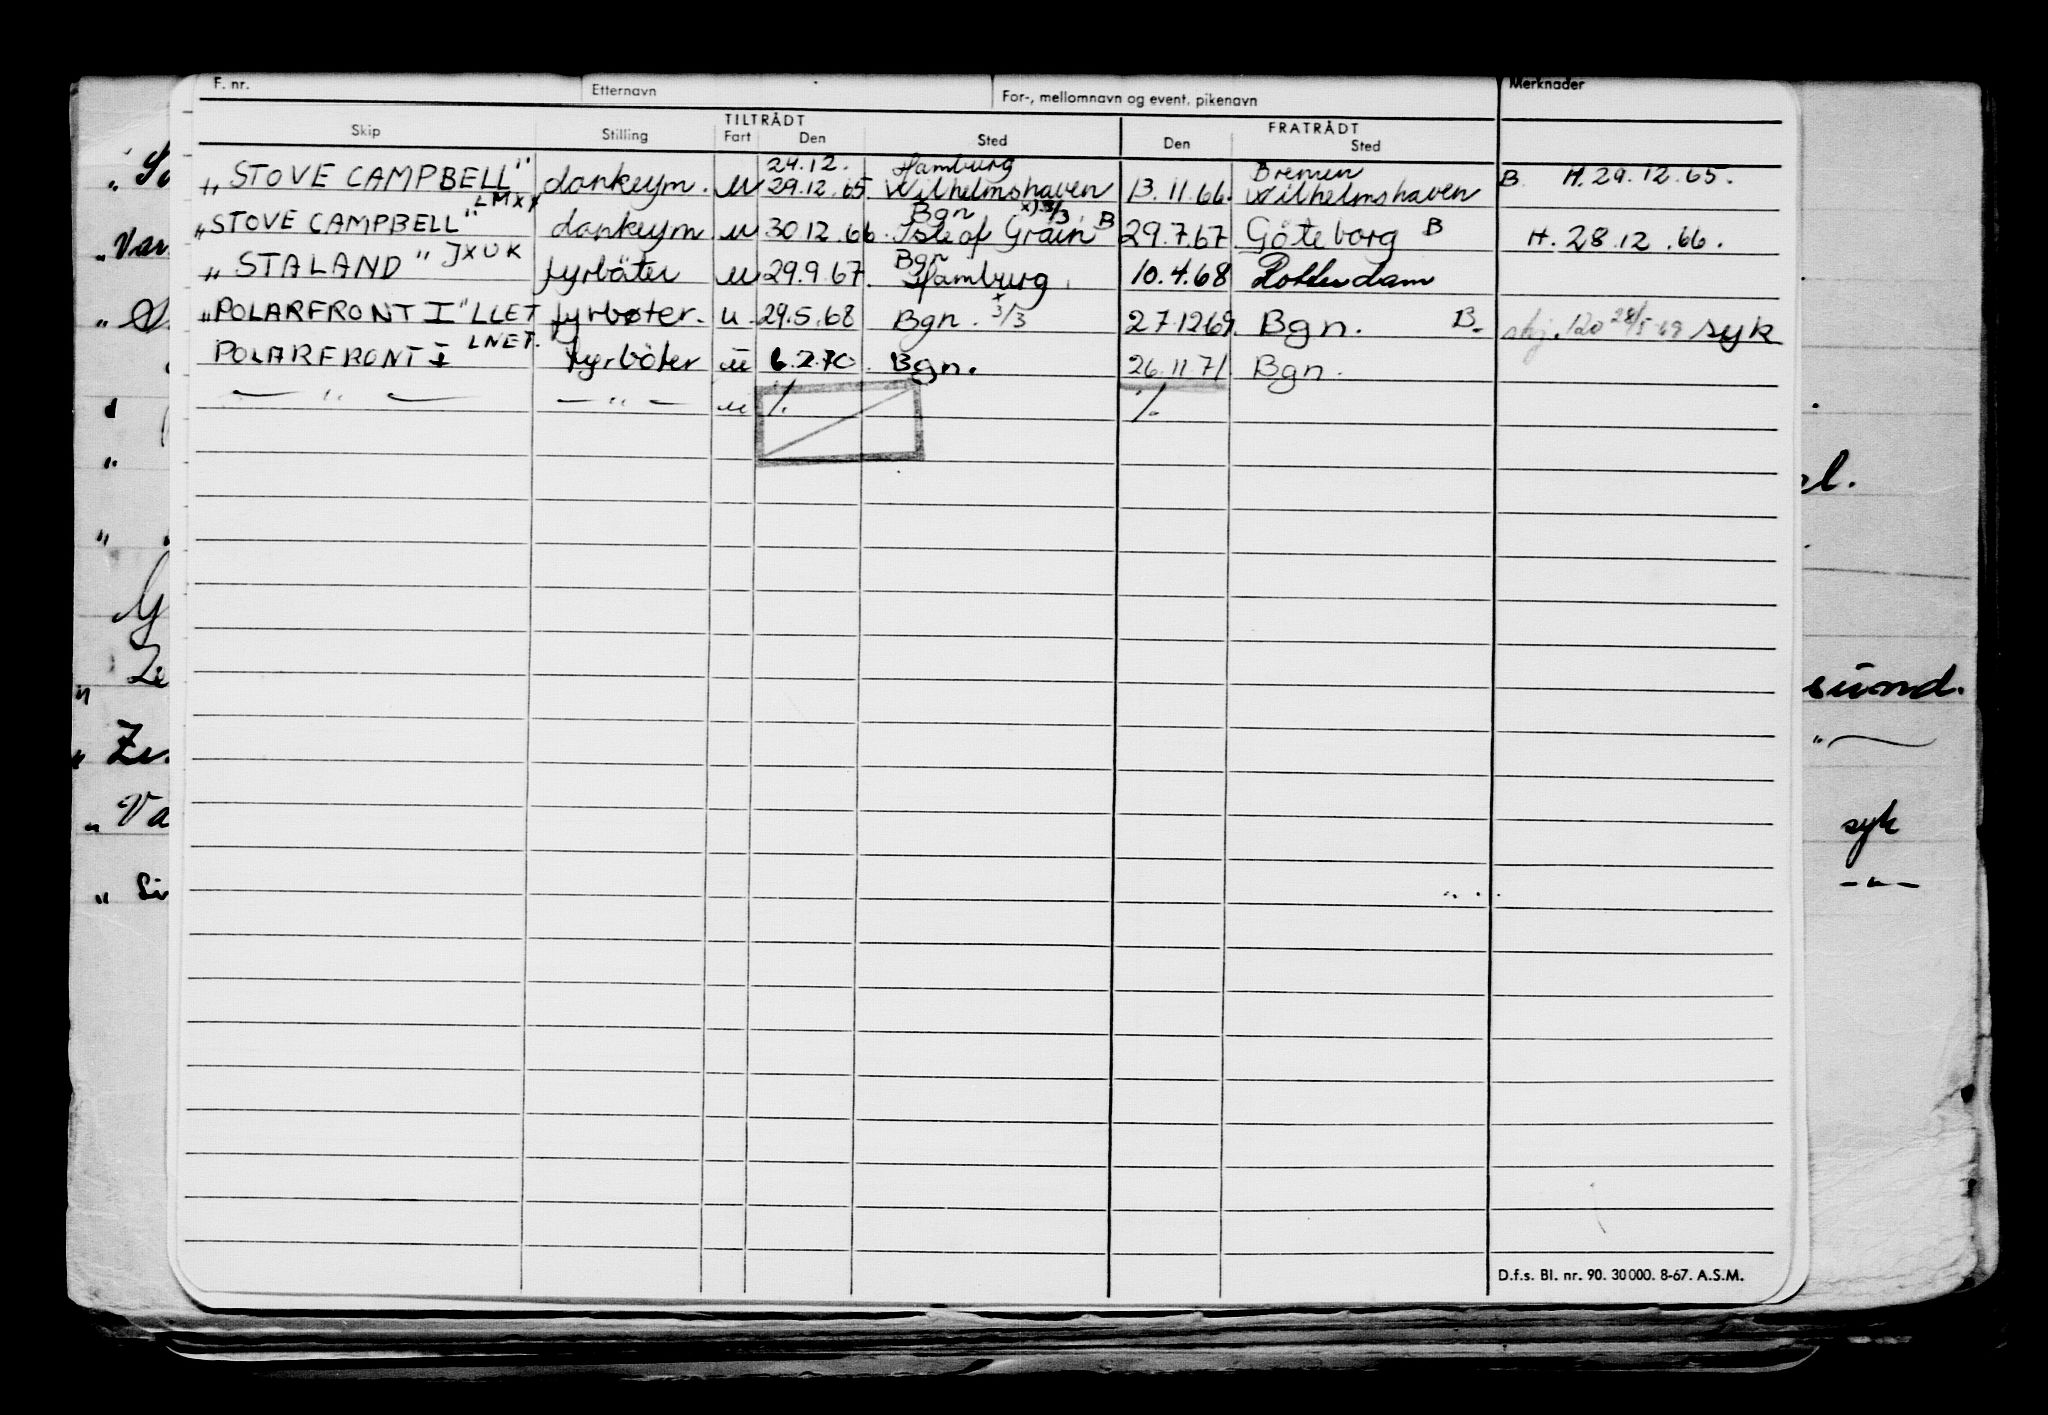 F. nr. Etternavn For-, mellomnavn og event. pikenavn Merknader
TILTRÅDT FRATRÅDT
Skip Stilling Fart Den Sted Den Sted
24.12. Hamburg Bremen
„STOVE CAMPBELL" donkeym. u 29.12.65. Wilhelmshaven 13.11.66. Wilhelmshaven B. H. 29.12.65.
LMXY Bgn x) 3/3
„STOVE CAMPBELL" donkeym. u 30.12.66. Isle of Grain B 29.7.67 Göteborg B H. 28.12.66.
Bgn
„STALAND" JXUK fyrböter u 29.9.67. Hamburg. 10.4.68 Rotterdam
„POLARFRONT I" LLET fyrbøter. u. 29.5.68 Bgn. x 3/3 27.1269. Bgn. B. 120 28/5-69 syk
LNET.
POLARFRONT I fyrböter u 6.2.70. Bgn. 26.11.71 Bgn.
— " — — " — u %. %.
D.f.s. Bl. nr. 90. 30000. 8-67. A.S.M.
l.
sund.
"
syk
-"-
„ Va